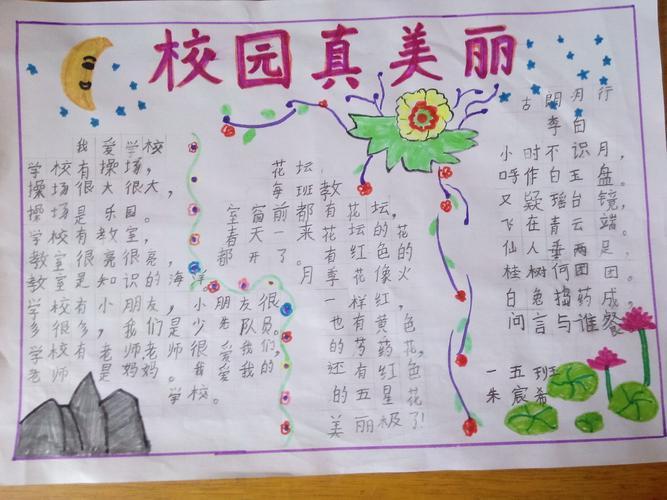 校园真美丽
我爱学校
学校有操场，
操场很大很大，
操场是乐园。
学校有教室，
教室很亮很亮，
教室是知识的海洋。
学校有小朋友，小朋友很
多很多，我们是少先队员。
学校有老师，老师很爱我们，
老师是妈妈。我爱我的
学校。
花坛
每班教
室窗前都有花坛，
春天一来花坛的花
都开了。有红色的
月季花像火
一样红，
也有黄色
的芍药花，
还有红色
的五星花
美丽极了！
古朗月行
李白
小时不识月，
呼作白玉盘。
又疑瑶台镜，
飞在青云端。
仙人垂两足，
桂树何团团。
白兔捣药成，
问言与谁餐
一五班
朱宸希